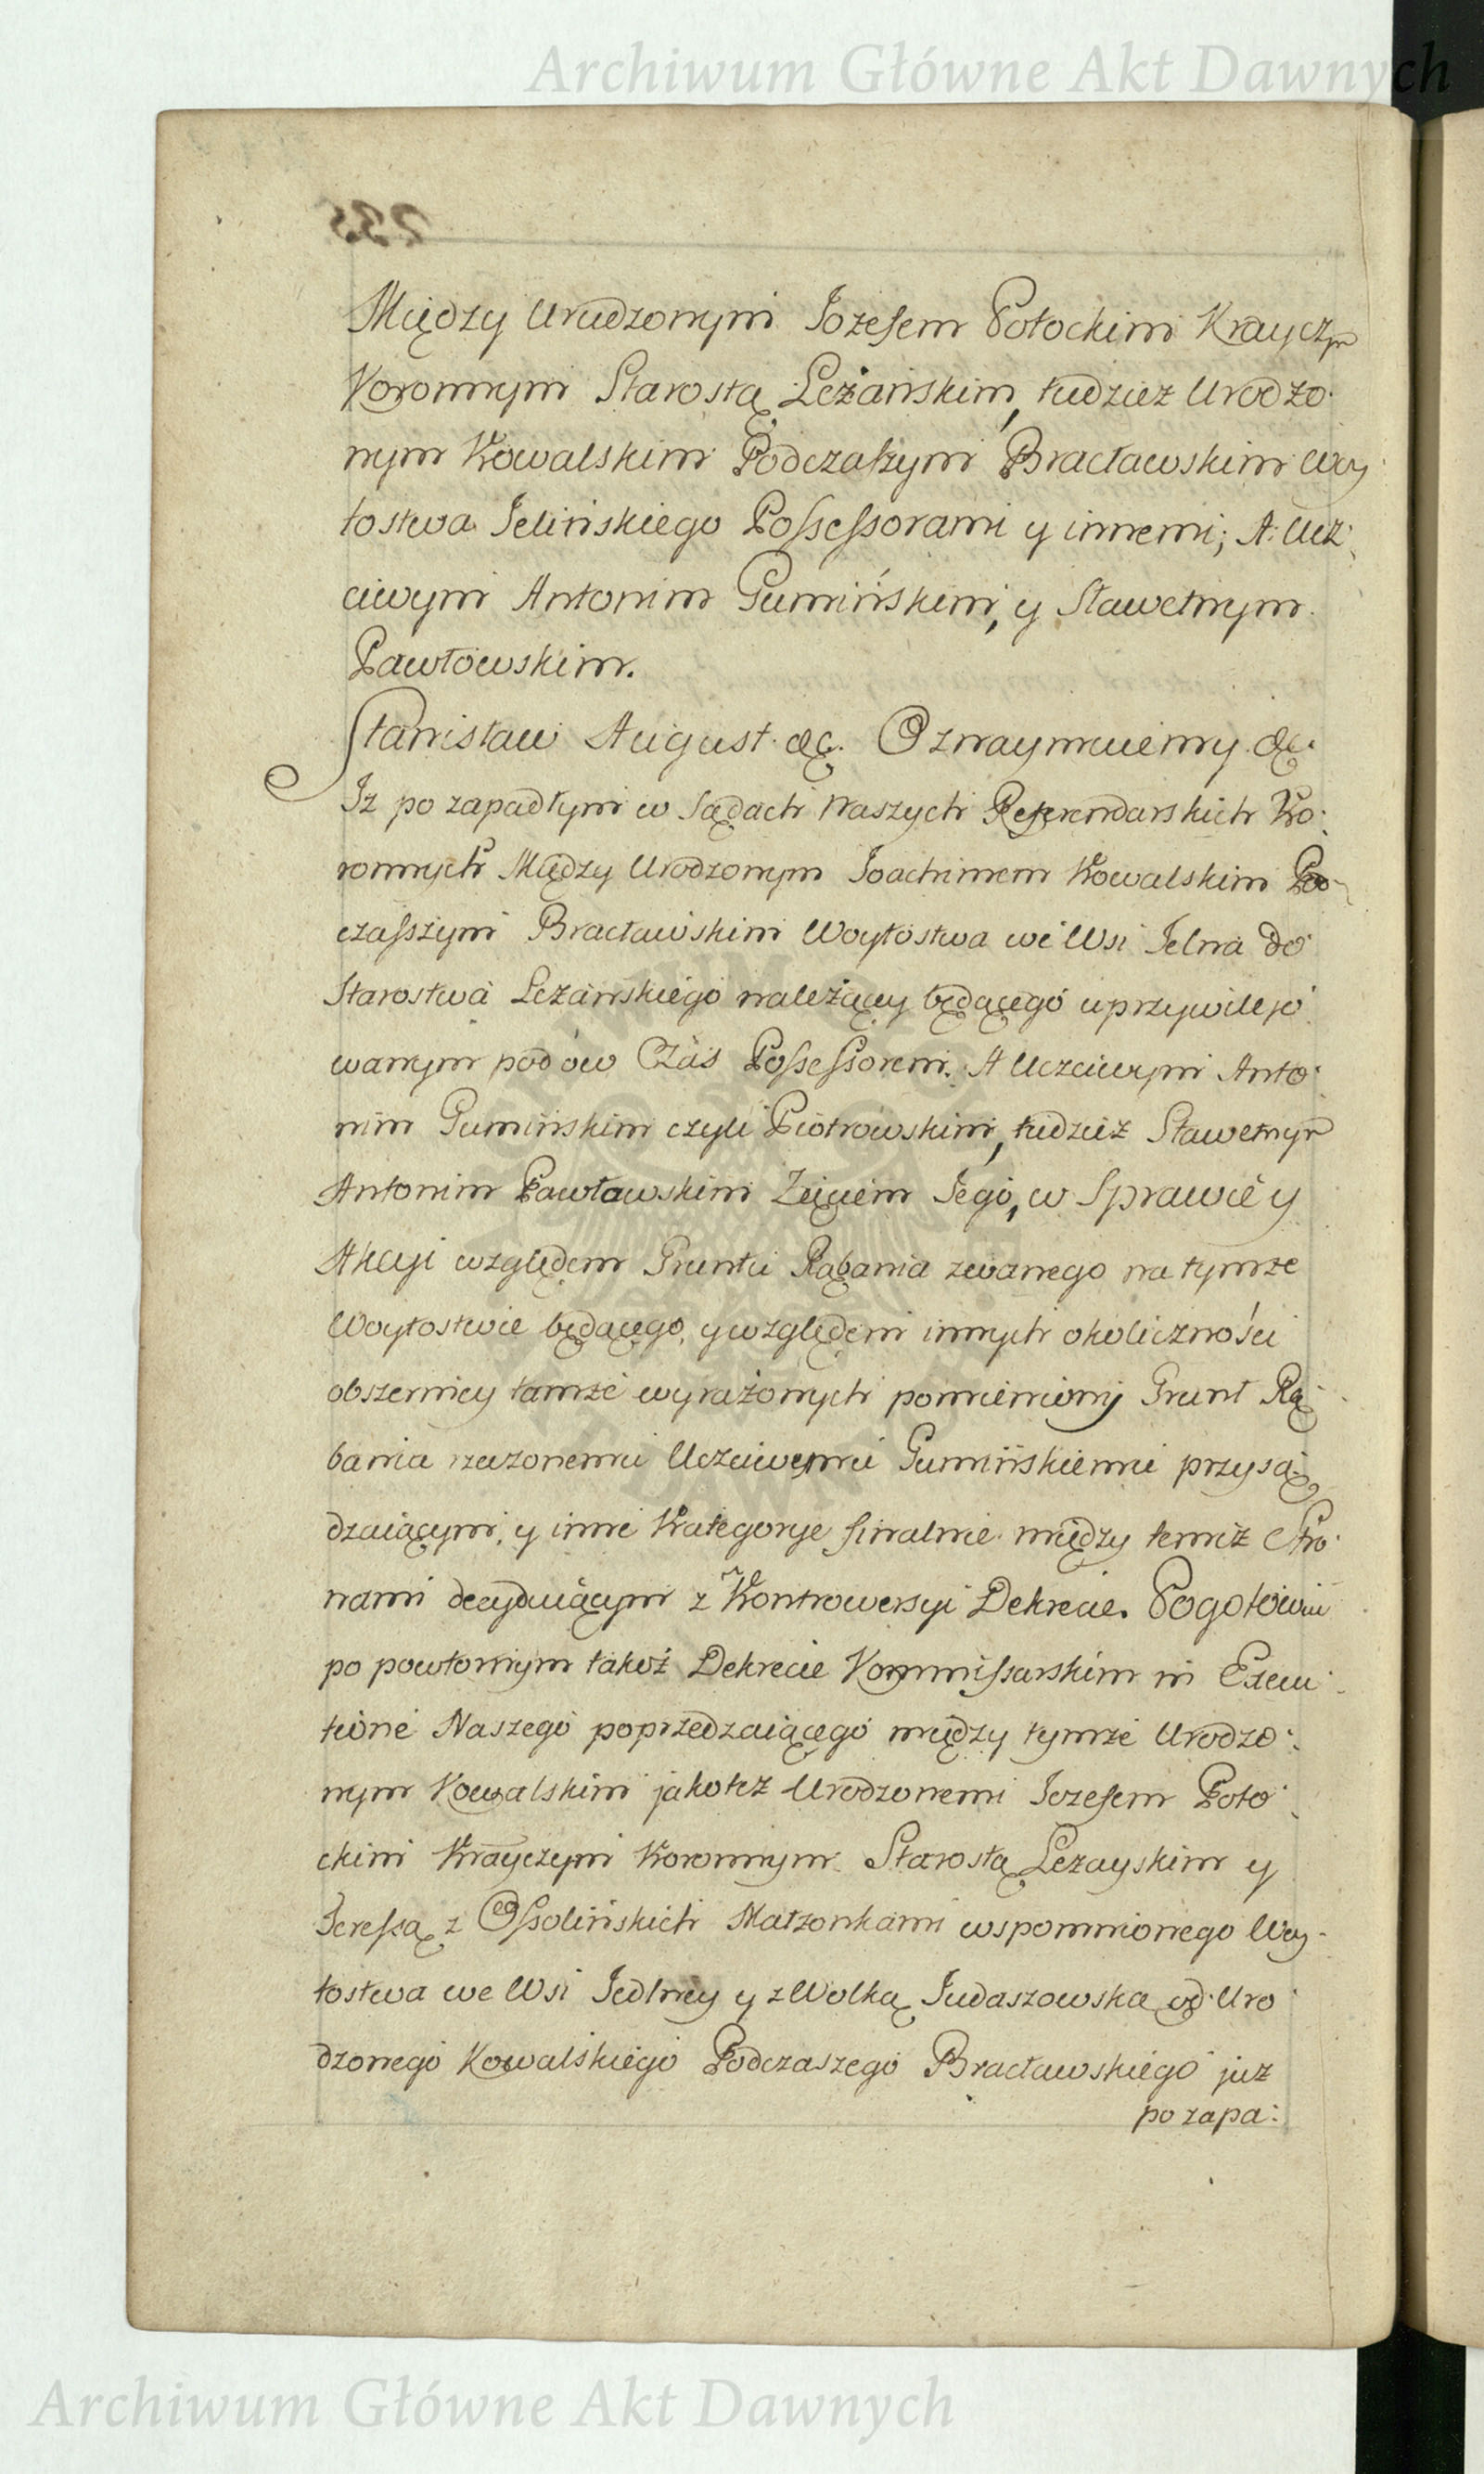 Archiwum Główne Akt Dawnych
235
Między Urodzonym Jozefem Potockim Krayczym
Koronnym Starostą Leżańskim, tudzież Urodzo:
nym Kowalskim Podczaszym Bracławskim Woy:
tostwa Jelińskiego Possessorami y innemi; A Ucz:
ciwym Antonim Gumińskim, y Sławetnym
Pawłowskim.
Stanisław August &c. Oznaymuiemy &c.
Iz po zapadłym w Sądach Naszych Referendarskich Ko:
ronnych Między Urodzonym Joachimem Kowalskim Pod:
czaszym Bracławskim Woytostwa we Wsi Jelna do
Starostwa Leżańskiego należącey będącego uprzywilejo:
wanym pod ow Czas Possessorem. A Uczciwym Anto:
nim Gumińskim czyli Piotrowskim, tudzież Sławetnym
Antonim Pawławskim Zięciem Jego, w Sprawie y
Akcyi względem Gruntu Rąbania zwanego na tymże
Woytostwie będącego, y względem innych okoliczności
obszerniey tamże wyrażonych pomieniony Grunt Rą:
bania rzeczonemu Uczciwemu Gumińskiemu przysą:
dzaiącym, y inne Kategorye finalnie między temiż Stro:
nami decyduiącym z Kontrowersyi Dekrecie. Pogotowiu
po powtornym takoż Dekrecie Kommissarskim in Execu:
tione Naszego poprzedzaiącego między tymże Urodzo:
nym Kowalskim jakoteż Urodzonemi Jozefem Poto:
ckim Krayczym Koronnym Starostą Leżayskim y
Teressą z Ossolińskich Małżonkami wspomnionego Woy:
tostwa we Wsi Jedlney y z Wolką Judaszowską od Uro:
dzonego Kowalskiego Podczaszego Bracławskiego już
po zapa:
Archiwum Główne Akt Dawnych